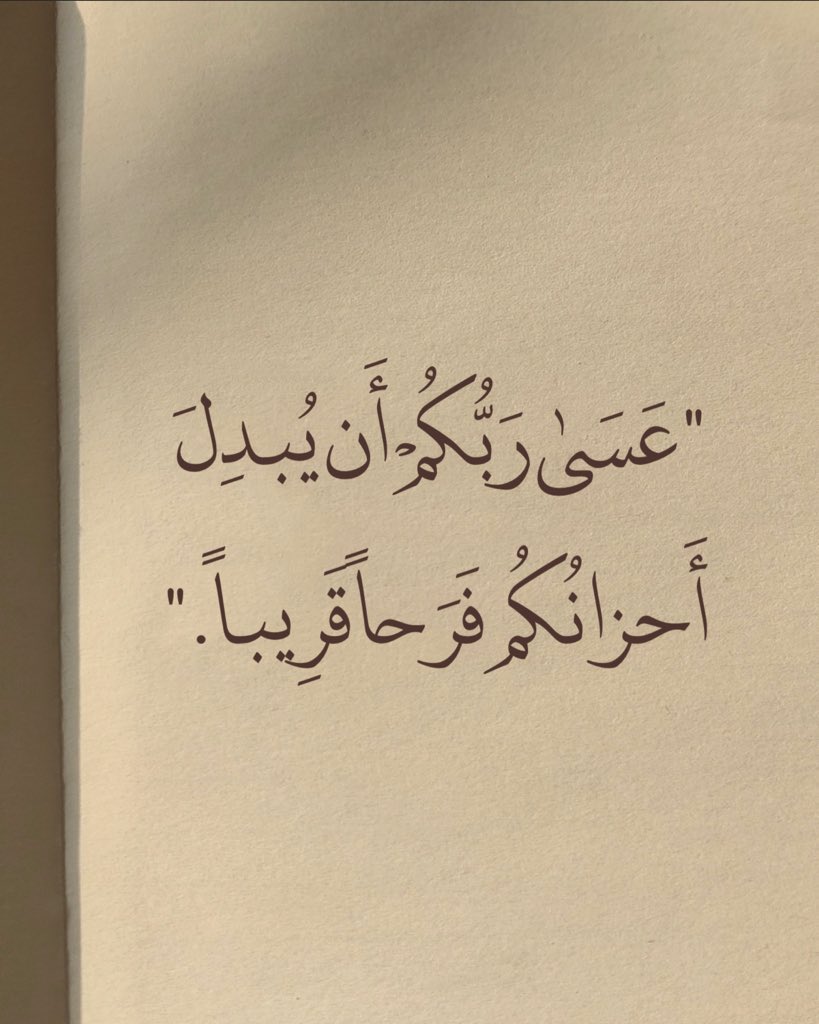 "عَسَىٰ رَبُّكُمْ أَن يُبدِلَ
أَحزانُكُم فَرَحاً قَرِيباً."